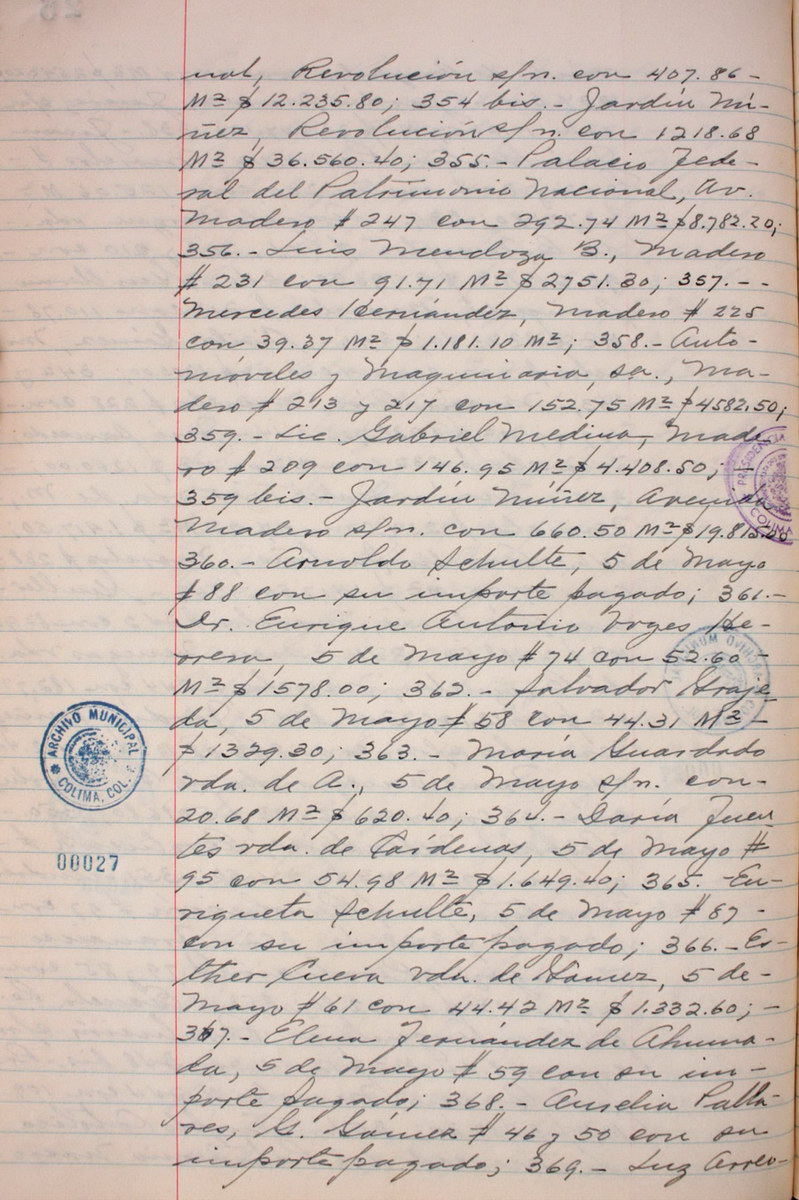 nal, Revolución s/n. con 407.86-
M² $12.235.80; 354 bis.- Jardín Nú-
ñez, Revolución s/n. con 1218.68
M² $36.560.40; 355.- Palacio Fede-
ral del Patrimonio Nacional, Av.
Madero #247 con 292.74 M² $8.782.20;
356.- Luis Mendoza B., Madero
#231 con 91.71 M² $2751.30; 357.--
Mercedes Hernández, Madero #225
con 39.37 M² $1.181.10 M²; 358.- Auto-
móviles y Maquinaria, sa., Ma-
dero #213 y 217 con 152.75 M² $4582.50;
359.- Lic. Gabriel Medina, Made-
ro #209 con 146.95 M² $4.408.50; -
359 bis.- Jardín Núñez, Avenida
Madero s/n. con 660.50 M² $19.815.00
360.- Arnoldo Schulte, 5 de Mayo
#88 con su importe pagado; 361.-
Dr. Enrique Antonio Voges He-
rrera, 5 de Mayo #74 con 52.60-
M² $1578.00; 362.- Salvador Graje-
da, 5 de Mayo #58 con 44.31 M²-
$1329.30; 363.- María Guardado
vda. de A., 5 de Mayo s/n. con-
20.68 M² $620.40; 364.- Daría Fuen
tes vda. de Cárdenas, 5 de Mayo #
95 con 54.98 M² $1.649.40; 365.-En-
riqueta Schulte, 5 de Mayo #87-
con su importe pagado; 366.-Es-
ther Cueva vda. de Gamez, 5 de-
Mayo #61 con 44.42 M² $1.332.60;-
367.- Elena Fernández de Ahuma-
da, 5 de Mayo #59 con su im-
porte pagado; 368.- Aurelia Palla-
res, G. Gámez #46 y 50 con su
importe pagado; 369.- Luz Arreo-
PRESIDENCIA
COLIMA
ARCHIVO MUNICIPAL
COLIMA, COL.
00027